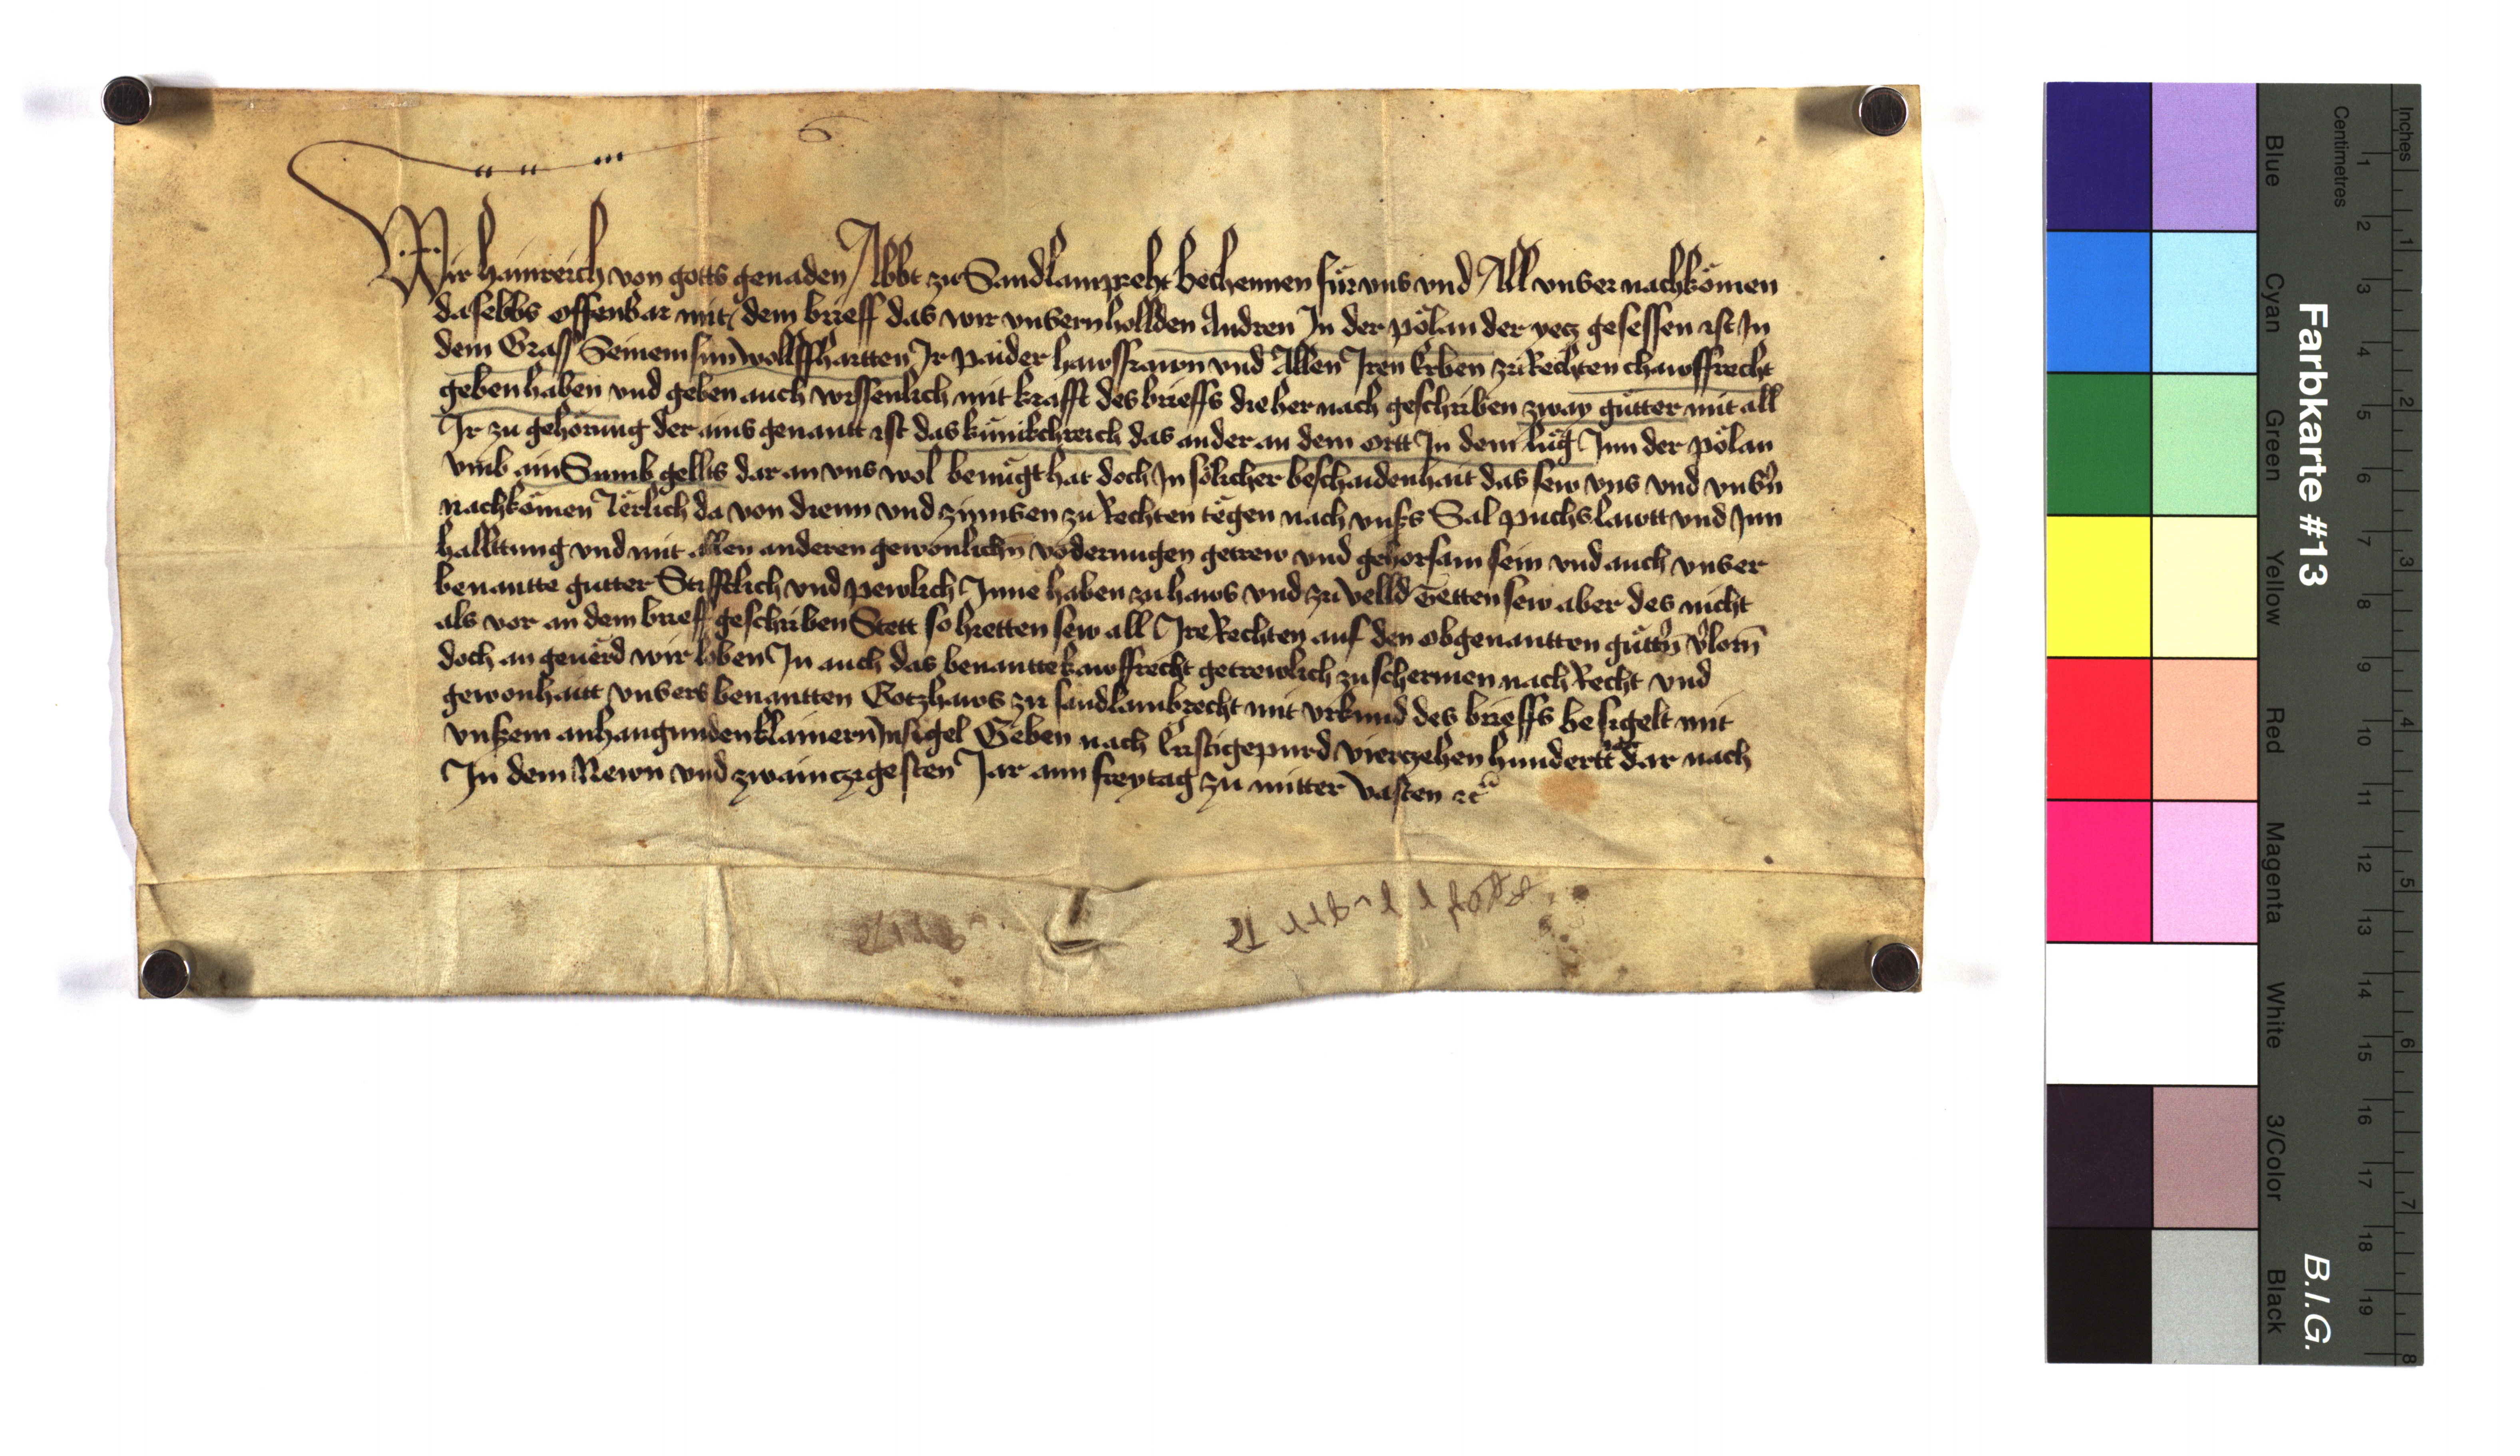 Wir hainreich von gotts genaden Abbt zu Sandlampreht bechennen für uns und All unser nachkömen
daselbbs offenbar mit dem brieff das wir unsern hollden Andren In der pölan der yecz gesessen ist In
dem Grass Seinem sun wollffhartten Ir paider hawsfrawn und Allen Iren Erben zu Rechten chawffrecht
geben haben und geben auch wissenlich mit krafft des brieffs die her nach geschriben zway gütter mit all
Ir zu gehörung der ains genantt ist das künikchreich das ander an dem ortt In dem lüg Inn der pölan
umb ain Sumb gellts dar an uns wol benügt hat doch In sölicher beschaidenhait das sew uns und unsern
nachkömen Iërlich da von dienn und zynnsen zu Rechten tëgen nach unsers Sal puchs lawtt und Inn
halltung und mit allen anderen gewonlichen vodernugen getrew und gehorsam sein und auch unser
benantte gutter Stifftlich und pewlich Inne haben zu haws und zu velld Tetten sew aber des nicht
als vor an dem brieff geschriben Stett so hietten sew all Ire Rechten auf den obgenantten güttern verlorn
doch an geuërd wir loben In auch das benantte kawffrecht getrewlich zu schermen nach Recht und
gewonhaitt unsers benantten Gotzhaws zu sandlambrecht mit urkund des brieffs besigelt mit
unserm anhangunden klainern Insigel Geben nach Cristi gepurd vierzehen hundertt dar nach
In dem Newn und zwainczigesten Jar am freytag zu mitter vasten etc
Farbkarte #13
B.I.G.
Inches
Centimetres
Blue
Cyan
Green
Yellow
Red
Magenta
White
3/Color
Black
1 2 3 4 5 6 7 8 9 10 11 12 13 14 15 16 17 18 19
1 2 3 4 5 6 7 8